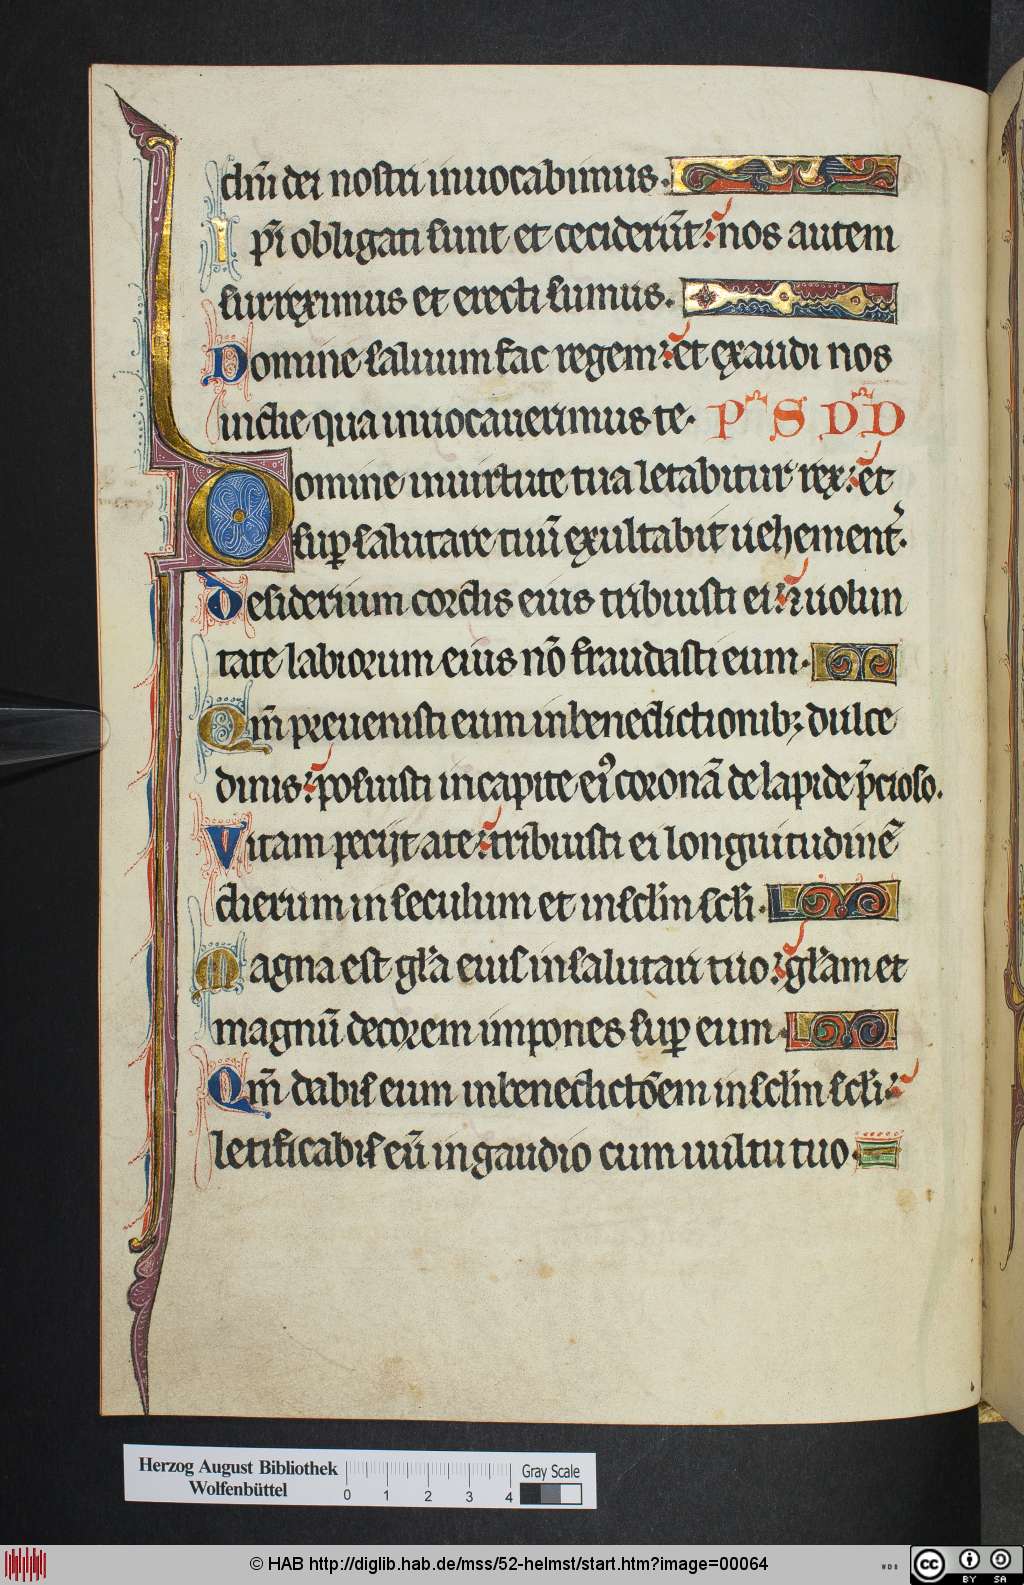 dn̄i dei nostri inuocabimus.
Ipi̅ obligati sunt et ceciderūt: nos autem
surreximus et erecti sumus.
Domine saluum fac regem: et exaudi nos
in die qua inuocauerimus te. P̄S DD
Domine in uirtute tua letabitur rex: et
suꝑ salutare tuū exultabit uehement᷑.
Desiderium cordis eius tribuisti ei: ⁊ uolun
tate labiorum eius nō fraudasti eum.
Qm̄ preuenisti eum in benedictionibꝫ dulce
dinis: posuisti in capite eiꝰ coronā de lapide p̄cioso.
Vitam petijt a te: tribuisti ei longuitudinē
dierum in seculum et in sc̄lm sc̄li.
Magna est gl̄a eius in salutari tuo: gl̄am et
magnū decorem impones suꝑ eum.
Qm̄ dabis eum in benedictōem in sc̄lm sc̄li:
letificabis eū in gaudio cum uultu tuo.
Herzog August Bibliothek
Wolfenbüttel
0 1 2 3 4
Gray Scale
© HAB http://diglib.hab.de/mss/52-helmst/start.htm?image=00064
WDB
cc BY SA